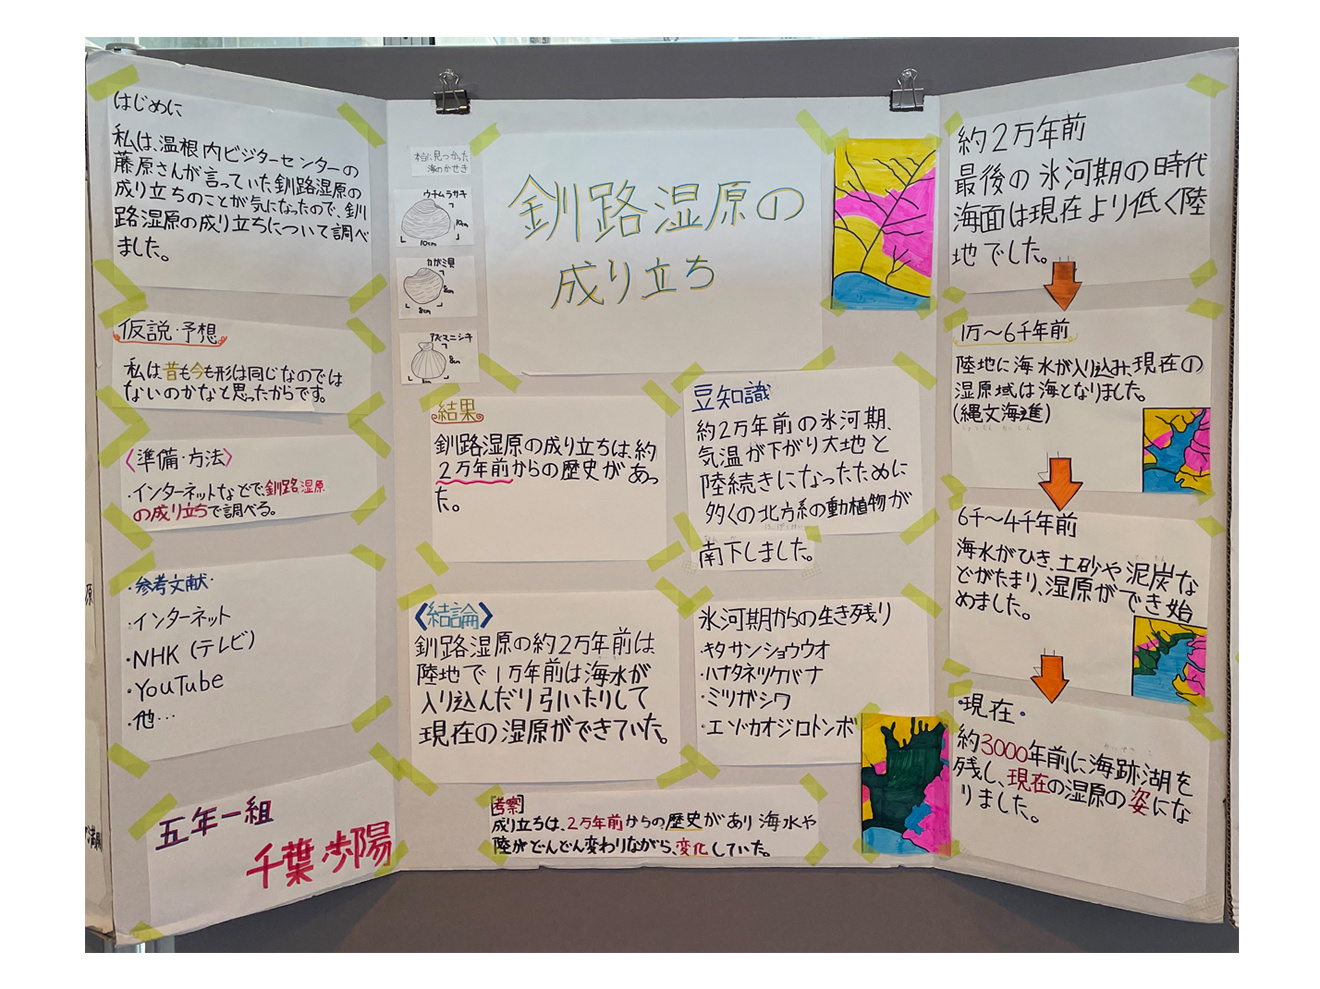 はじめに
私は、温根内ビジターセンターの
藤原さんが言っていた釧路湿原の
成り立ちのことが気になったので、釧
路湿原の成り立ちについて調べ
ました。
仮説・予想
私は昔も今も形は同じなのでは
ないのかなと思ったからです。
〈準備・方法〉
・インターネットなどで、釧路湿原
の成り立ちで調べる。
・参考文献・
・インターネット
・NHK(テレビ)
・YouTube
・他…
五年一組
千葉歩陽
本当に見つかった
海のかせき
ウチムラサキ
10cm
10cm
カガミ貝
8cm
8cm
アズマニシキ
8cm
釧路湿原の
成り立ち
結果
釧路湿原の成り立ちは、約
2万年前からの歴史があっ
た。
豆知識
約2万年前の氷河期、
気温が下がり大地と
陸続きになったために
多くの北方系の動植物が
南下しました。
《結論》
釧路湿原の約2万年前は
陸地で1万年前は海水が
入り込んだり引いたりして
現在の湿原ができていた。
氷河期からの生き残り
・キタサンショウウオ
・ハナタネツケバナ
・ミツガシワ
・エゾカオジロトンボ
[考察]
成り立ちは、2万年前からの歴史があり海水や
陸がどんどん変わりながら、変化していた。
約2万年前
最後の氷河期の時代
海面は現在より低く陸
地でした。
1万〜6千年前
陸地に海水が入り込み、現在の
湿原域は海となりました。
(縄文海進)
6千〜4千年前
海水がひき、土砂や泥炭な
どがたまり、湿原ができ始
めました。
・現在・
約3000年前に海跡湖を
残し、現在の湿原の姿にな
りました。